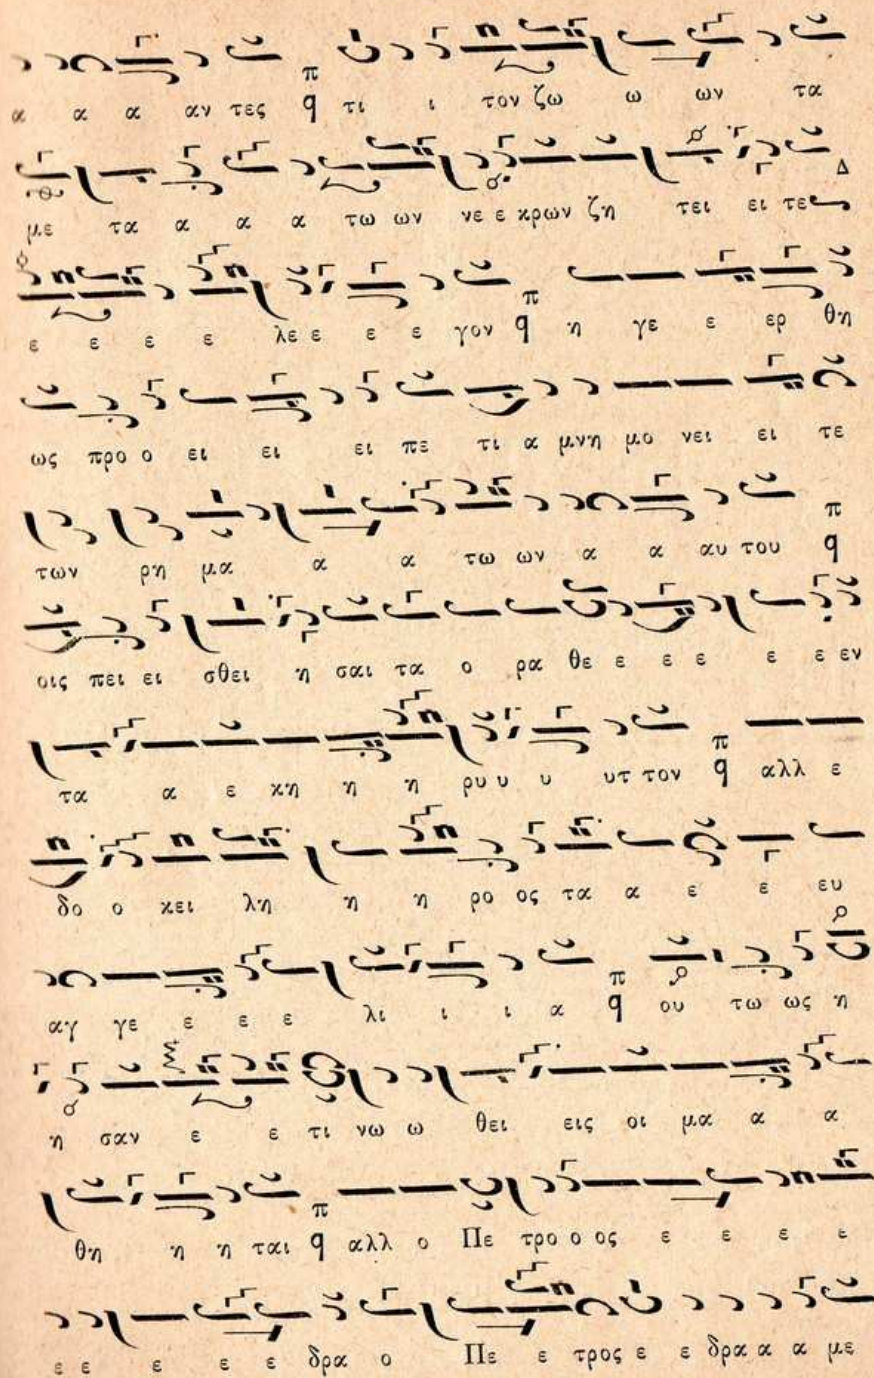 α α α αν τες π q τι ι τον ζω ω ων τα
με τα α α α τω ων νε ε κρων ζη τει ει τε Δ
ε ε ε ε λε ε ε ε γον π q η γε ε ερ θη
ως προ ο ει ει ει πε τι α μνη μο νει ει τε
των ρη μα α α τω ων α α αυ του π q
οις πει ει σθει η σαι τα ο ρα θε ε ε ε ε ε εν
τα α ε κη η η ρυ υ υ υτ τον π q αλλ ε
δο ο κει λη η η ρο ος τα α ε ε ευ
αγ γε ε ε ε λι ι ι α π q ου τω ως η
η σαν ε ε τι νω ω θει εις οι μα α α
θη η η ται π q αλλ ο Πε τρο ο ος ε ε ε ε
ε ε ε ε ε δρα ο Πε ε τρος ε ε δρα α α με